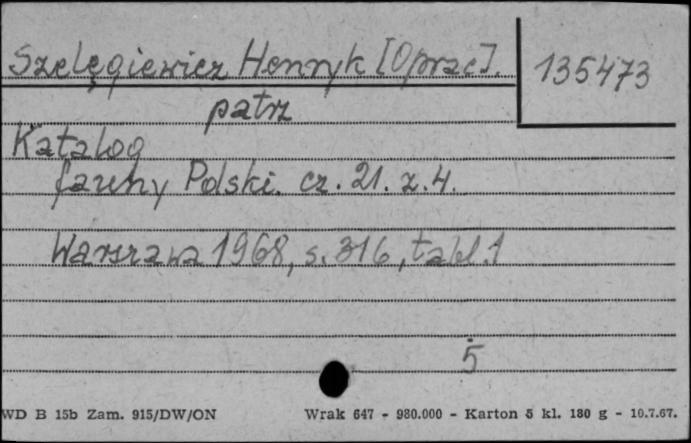 Szelęgiewicz Henryk [Oprac].
135473
patrz
Katalog
fauny Polski. cz. 21. z. 4.
Warszawa 1968, s. 316, tabl. 1
5
WD B 15b Zam. 915/DW/ON
Wrak 647 - 980.000 - Karton 5 kl. 180 g - 10.7.67.